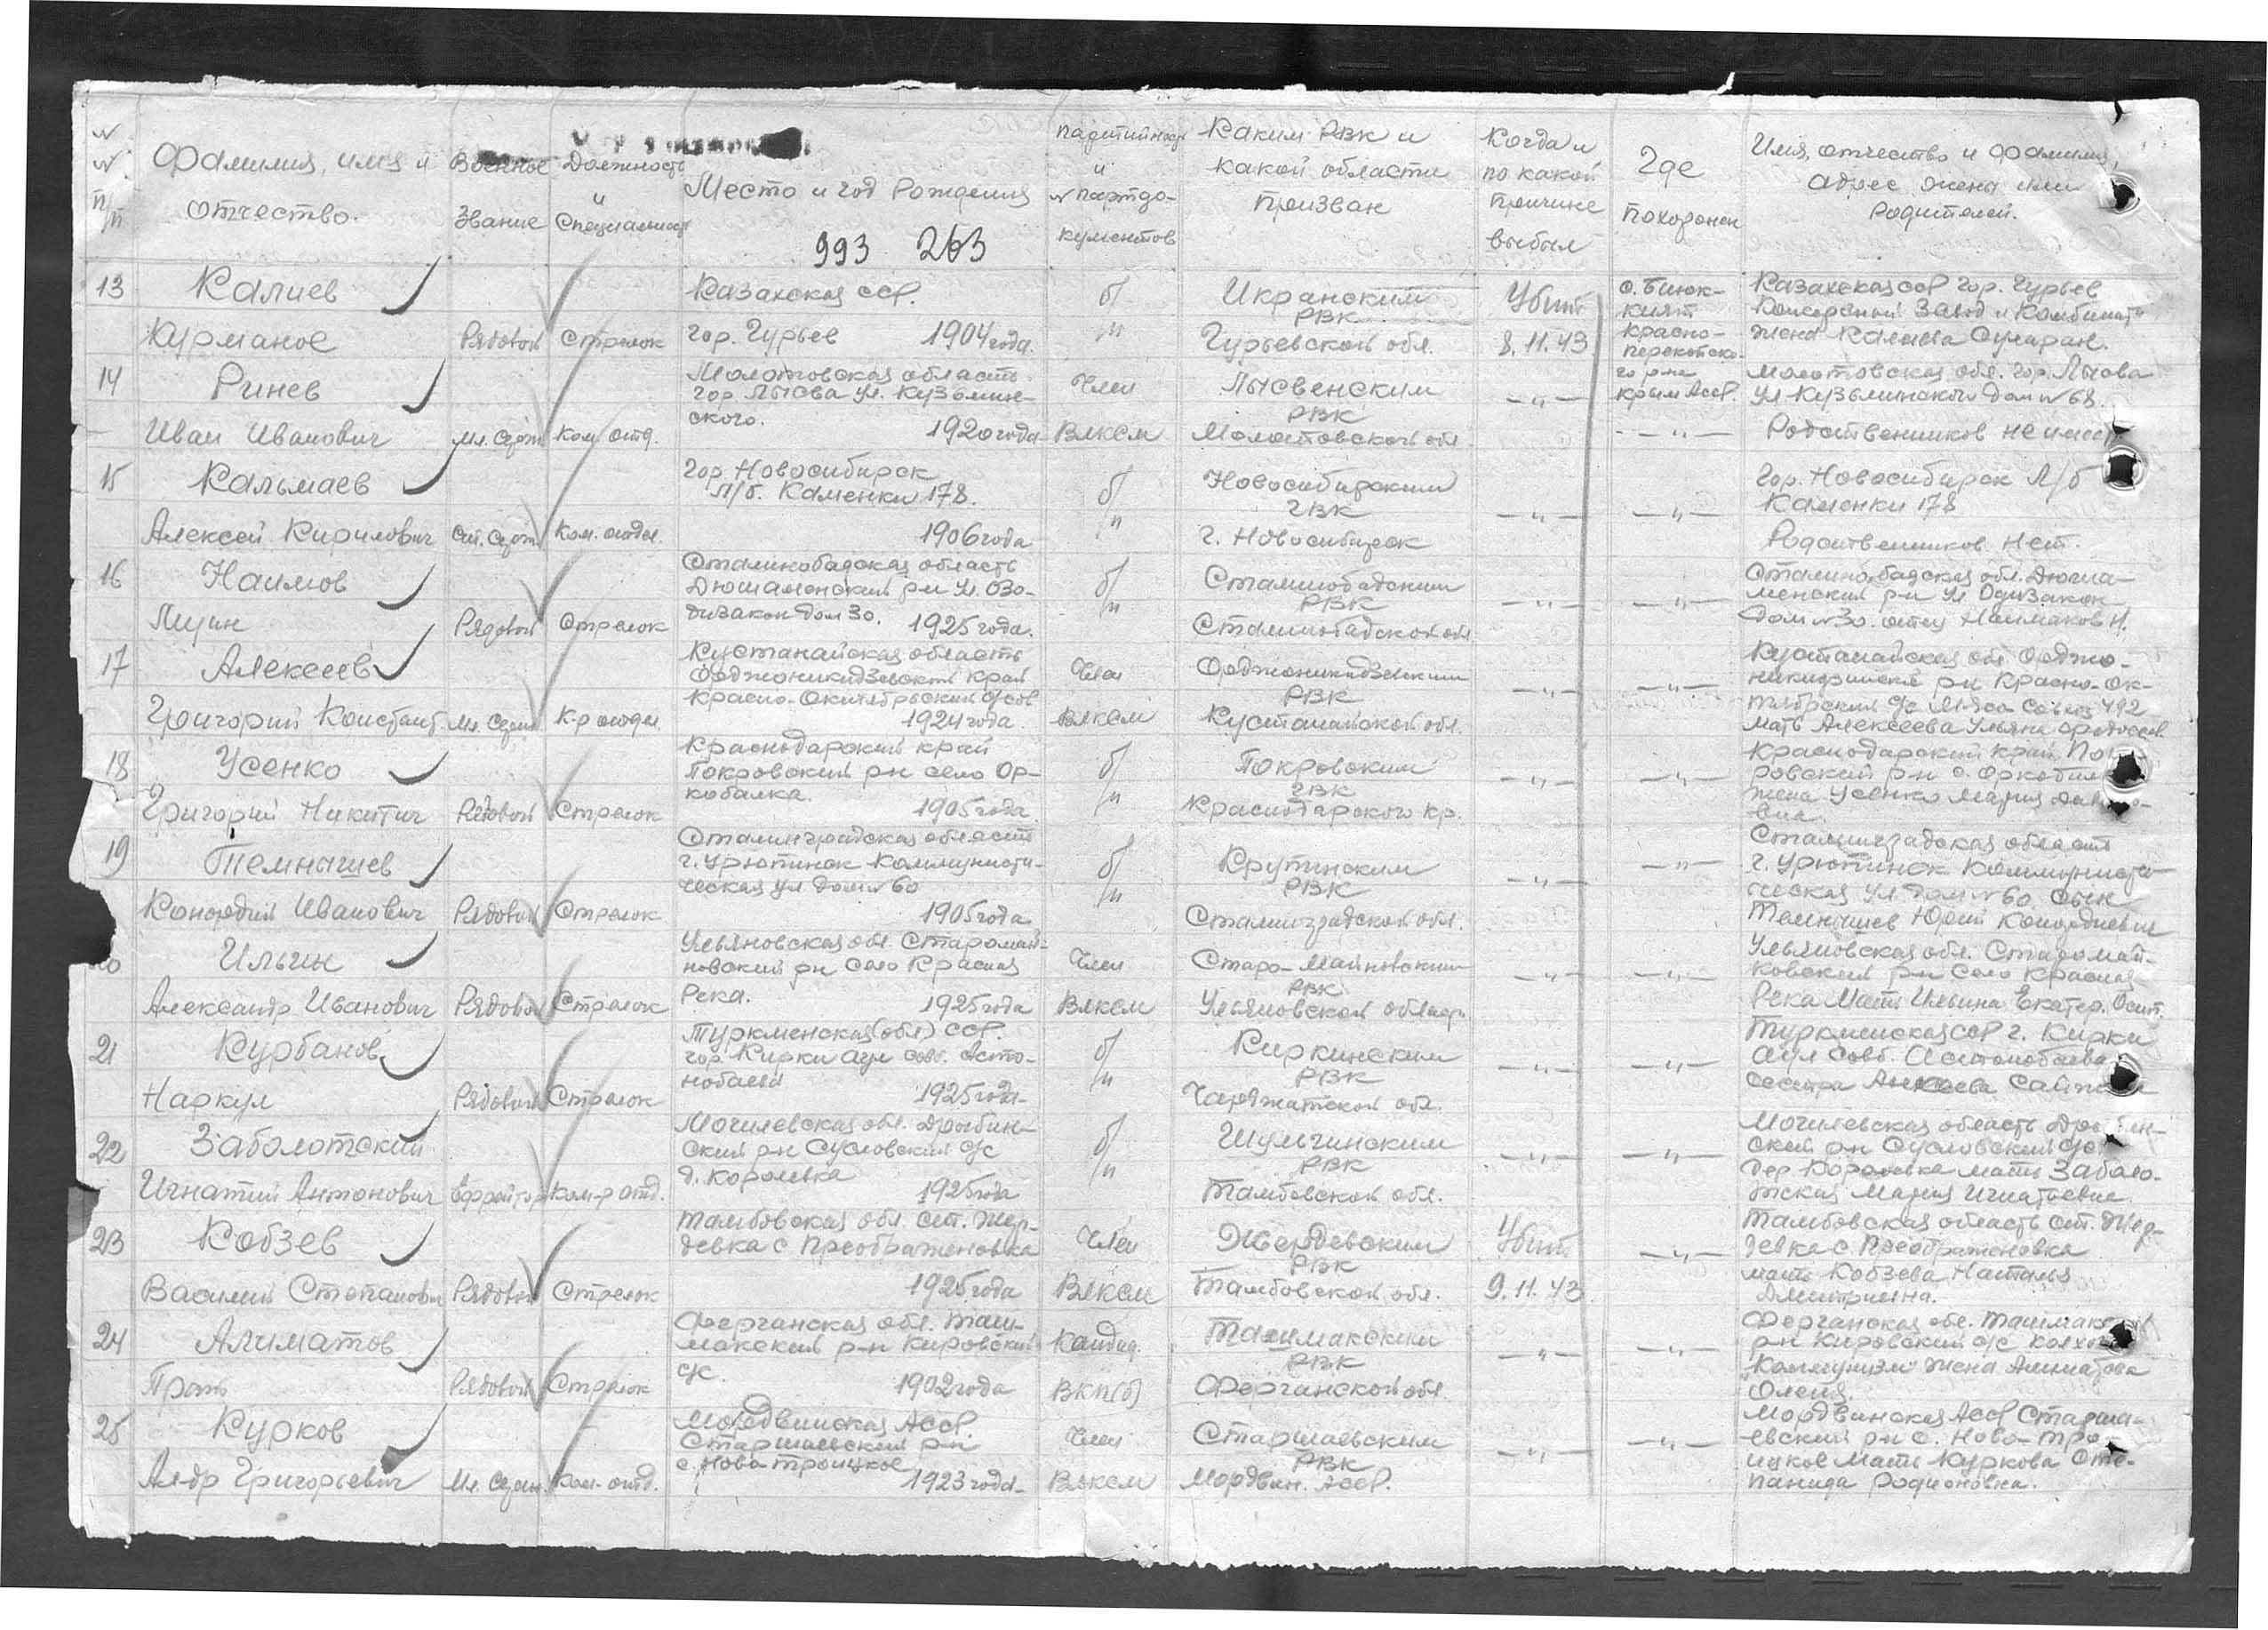 № № п/п
Фамилия, имя и отчество.
Военное звание
Должность и специальность
Место и год рождения
993 263
Партийность и № партдокументов
Каким РВК и какой области призван
Когда и по какой причине выбыл
Где похоронен
Имя, отчество и фамилия, адрес жены или родителей.
13
Калиев
Курманое
Рядовой
Стрелок
Казахская ССР.
гор. Гурьев 1904 года.
б/п
РВК
Гурьевской обл.
Убит
8.11.43
с. Биюк-
кият
Красно-
перекопско-
го р-на
Крым АССР.
Казахская ССР гор. Гурьев
Консервный завод и Комбинат
жена Калиева
14
Ринев
Иван Иванович
Мл. Серж
Ком. отд.
Молотовская область
гор. Лысва ул. Кузьмин-
ского.
1920 года
Член
ВЛКСМ
Лысвенским
РВК
Молотовской обл.
—„—
—„—
Молотовская обл. гор. Лысва
ул Кузьминского дом № 68.
Родственников не имеет
15
Кальмаев
Алексей Кирилович
Ст. Серж
Ком. отдел.
гор. Новосибирск
п/б. Каменки 178.
1906 года
б/п
Новосибирским
ГВК
г. Новосибирск
—„—
—„—
гор. Новосибирск Л/б
Каменки 178
Родственников нет.
16
Наимов
Рядовой
Стрелок
Сталинобадская область
Дюшаменский р-н ул. Озо-
дизакон дом 30. 1925 года.
б/п
Сталинобадским
РВК
Сталинобадской обл
—„—
—„—
Сталинобадская обл. Дюша-
менский р-н ул Одизакон
Дом № 30. отец Наимаков Н.
17
Алексеев
Григорий Констант.
Мл. Серж
К-р отдел.
Кустанайская область
Орджоникидзевский край
Красно-Октябрьский с/сов
1924 года.
Член
ВЛКСМ
Орджоникидзевским
РВК
Кустанайской обл.
—„—
—„—
Кустанайская обл Орджо-
никидзевский р-н Красно-Ок-
тябрский с/с
мать Алексеева Ульяна
18
Усенко
Григорий Никитич
Рядовой
Стрелок
Краснодарский край
Покровский р-н село Ор-
кобалка.
1905 года.
б/п
Покровским
ГВК
Краснодарского кр.
—„—
—„—
Краснодарский край Пок
ровский р-н с.
жена Усенко Мария
19
Темнышев
Конордий Иванович
Рядовой
Стрелок
Сталинградская область
г. Урюпинск Коммунисти-
ческая ул дом № 60
1905 года
б/п
Крутинским
РВК
Сталинградской обл.
—„—
—„—
Сталинградская область
г. Урюпинск Коммунисти-
ческая ул дом № 60. сын
Темнышев Юрий Конордиевич
Ильин
Александр Иванович
Рядовой
Стрелок
Ульяновская обл. Старомай-
новский р-н село Красная
Река. 1925 года
Член
ВЛКСМ
Старо-Майновским
РВК
Ульяновской област.
—„—
—„—
Ульяновская обл. Старомай-
новский р-н село Красная
Река Мать Ильина Екатер. Осип.
21
Курбанов
Наркул
Рядовой
Стрелок
Туркменская (обл) ССР.
гор. Кирки аул совет. Асто-
нобаева
1925 года
б/п
Киркинским
РВК
Чарджатской обл.
—„—
—„—
Туркменская ССР г. Кирки
Аул Совт. Астонобаева
сестра
22
Заболотский
Игнатий Антонович
Ефрейтор
Ком-р отд.
Могилевская обл. Дрыбин-
ский р-н Сусловский с/с
д. Королевка
1925 года
б/п
Шульгинским
РВК
Тамбовской обл.
—„—
—„—
Могилевская область Дрыбин-
ский р-н Сусловский с/с
Дер. Королевка мать Заболо-
тская Мария Игнатьевна
23
Кобзев
Василий Степанович
Рядовой
Стрелок
Тамбовская обл. ст. Жер-
девка с Преображеновка
1925 года
Член
ВЛКСМ
Жердевским
РВК
Тамбовской обл.
Убит
9.11.43
—„—
Тамбовская область ст. Жер-
девка с. Преображеновка
мать Кобзева Наталья
Дмитриевна.
24
Алиматов
Рядовой
Стрелок
Ферганская обл. Таш-
макский р-н Кировский
с/с. 1902 года
Кандид.
ВКП(б)
Ташмакским
РВК
Ферганской обл.
—„—
—„—
Ферганская обл. Ташмакс
р-н Кировский с/с колхоз
„Коммунизм" жена Алиматова
25
Курков
Ал-др Григорьевич
Мл. Серж.
Ком. отд.
Мордвинская АССР.
Старшаевский р-н
с. Ново Троицкое
1923 года
Член
ВЛКСМ
Старшаевским
РВК
Мордвин. АССР.
—„—
—„—
Мордвинская АССР Старша-
евский р-н с. Ново-Тро-
ицкое Мать Куркова Сте-
панида Родионовна.